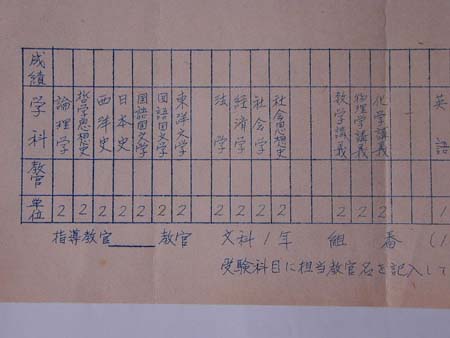 成績
学科 論理学 哲学思想史 西洋史 日本史 国語国文学 国語国文学 東洋文学 法学 経済学 社会学 社会思想史 数学講義 物理学講義 化学講義 英語
教官
単位 2 2 2 2 2 2 2 2 2 2 2 2 2 2 1
指導教官 教官 文科1年 組 番 (1
受験科目に担当教官名を記入して